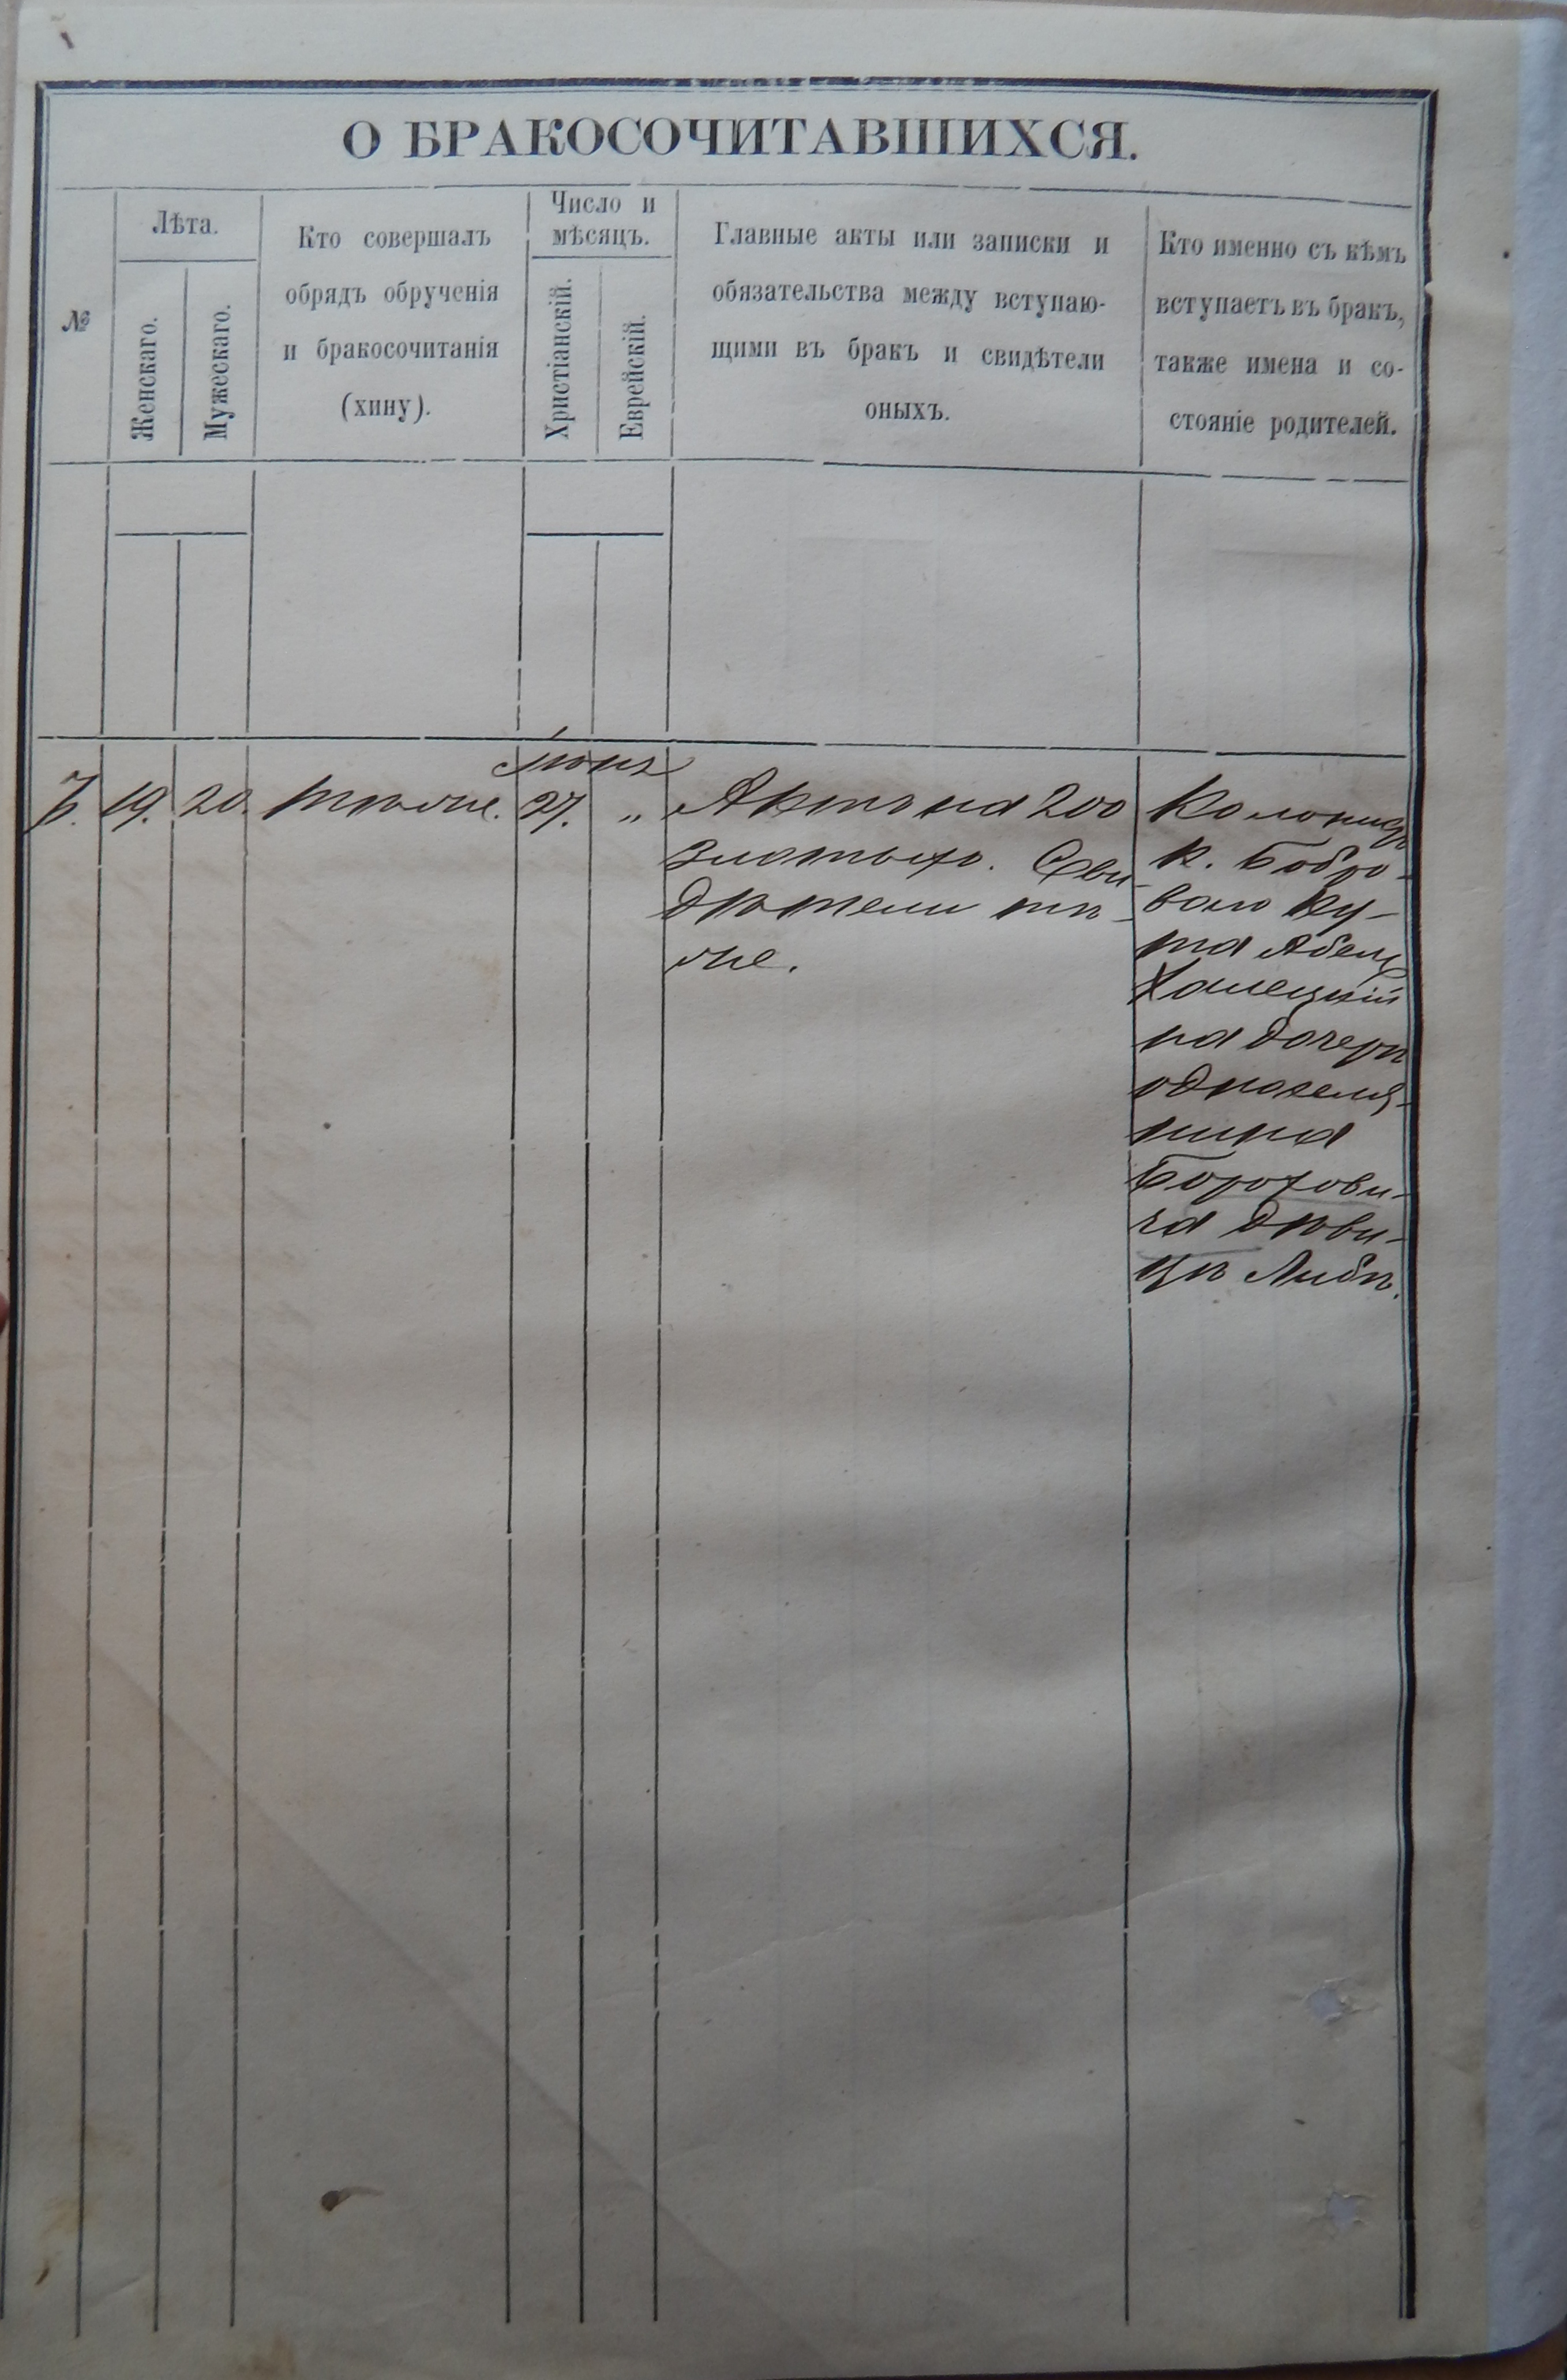 О БРАКОСОЧИТАВШИХСЯ.
№
Лѣта.
Женскаго.
Мужескаго.
Кто совершалъ
обрядъ обрученія
и бракосочитанія
(хину).
Число и
мѣсяцъ.
Христіанскій.
Еврейскій.
Главные акты или записки и
обязательства между вступаю-
щими въ бракъ и свидѣтели
оныхъ.
Кто именно съ кѣмъ
вступаетъ въ бракъ,
также имена и со-
стояніе родителей.
7.
19.
20.
тѣ же.
Іюня
27.
„
Актъ на 200
злотыхъ. Сви-
дѣтели тѣ
же.
Колонистъ
к. Бобро-
ваго Ку-
та Абель
Хамецкій
на дочери
одноземя-
нина
Борохови-
ча дѣви-
цѣ Либѣ.